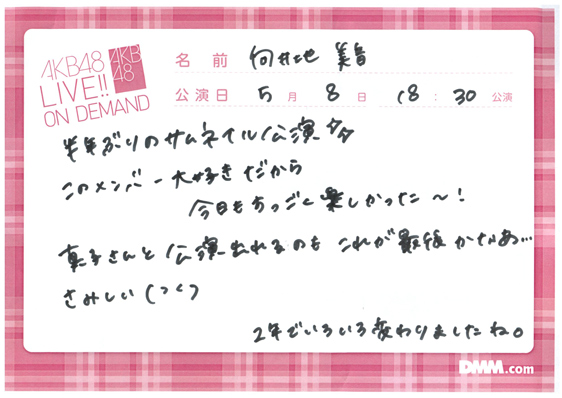 AKB48
LIVE!!
ON DEMAND
AKB
48
名前 向井地 美音
公演日 5月 8日 18:30 公演
半年ぶりのサムネイル公演
このメンバー大好きだから
今日もすっごく楽しかった〜!
真子さんと公演出れるのも これが最後かなあ…
さみしい(つく)
2年でいろいろ変わりましたね。
DMM.com